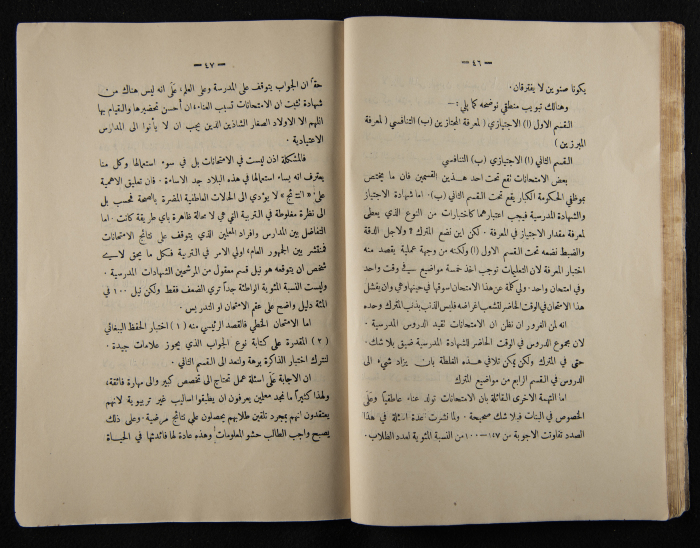 — ٤٦ —
يكونا صنوين لا يفترقان.
وهنالك تبويب منطقي نوضحه كما يلي : —
القسم الاول (ا) الاجتيازي (لمعرفة المجتازين (ب) التنافسي (لمعرفة
المبرزين)
القسم الثاني (ا) الاجتيازي (ب) التنافسي
بعض الامتحانات تقع تحت احد هذين القسمين فان ما يختص
بموظفي الحكومة الكبار يقع تحت القسم الثاني (ب). اما شهادة الاجتياز
والشهادة المدرسية فيجب اعتبارهما كاختبارات من النوع الذي يعطى
لمعرفة مقدار الاجتياز في المعرفة. لكن اين نضع المترك ؟ ولاجل الدقة
والضبط نضعه تحت القسم الاول (ا) ولكنه من وجهة عملية يقصد منه
اختبار المعرفة لان التعليمات توجب اخذ خمسة مواضيع في وقت واحد
وفي امتحان واحد. ولي كلمة عن هذا الامتحان اسوقها في حينها وهي وان يفشل
هذا الامتحان في الوقت الحاضر لتشعب اغراضه فليس الذنب بذنب المترك وحده
انه لمن الغرور ان نظن ان الامتحانات تقيد الدروس المدرسية.
لان مجموع الدروس في الوقت الحاضر للشهادة المدرسية ضيق بلا شك.
حتى في المترك ولكن يمكن تلافي هذه الغلطة بان يزاد شيء الى
الدروس في القسم الرابع من مواضيع المترك
اما التهمة الاخرى القائلة بان الامتحانات تولد عناء عاطفياً وعلى
الخصوص في البنات فبلا شك صحيحة. ولما نشرت عدة اسئلة في هذا
الصدد تفاوتت الاجوبة من ١٤٧—١٠٠ من النسبة المئوية لعدد الطلاب.
— ٤٧ —
حقاً ان الجواب يتوقف على المدرسة وعلى المعلم، على انه ليس هناك من
شهادة تثبت ان الامتحانات تسبب العناء، ان أحسن تحضيرها والقيام بها
اللهم الا الاولاد الصغار الشاذين الذين يجب ان لا يأتوا الى المدارس
الاعتيادية.
فالمشكلة اذن ليست في الامتحانات بل في سوء استعمالها وكل منا
يعترف انه يساء استعمالها في هذه البلاد جد الاساءة. فان تعليق الاهمية
على «النتائج» لا يؤدي الى الحالات العاطفية المضرة بالصحة فحسب بل
الى نظرة مغلوطة في التربية التي هي لا محالة ظاهرة باي طريقة كانت. اما
التفاضل بين المدارس وافراد المعلمين الذي يتوقف على نتائج الامتحانات
فمنتشر بين الجمهور العام، اولي الامر في التربية فكل ما يحق لاسيء
شخص ان يتوقعه هو نيل قسم معقول من المرشحين الشهادات المدرسية.
وليست النسبة المئوية الواطئة جداً تري الضعف فقط ولكن نيل ١٠٠ في
المئة دليل واضح على عقم الامتحان او التدريس.
اما الامتحان الخطي فالقصد الرئيسي منه (١) اختبار الحفظ الببغائي
(٢) المقدرة على كتابة نوع الجواب الذي يجوز علامات جيدة.
لنترك اختبار الذاكرة برهة ولنعد الى القسم الثاني.
ان الاجابة على اسئلة عمل تحتاج الى تخصص كبير والى مهارة فائقة،
ولهذا كثيراً ما نجد معلمين يعرفون ان يطبقوا اساليب غير تربيوية لانهم
يعتقدون انهم بمجرد تلقين طلابهم يحصلون على نتائج مرضية. وعلى ذلك
يصبح واجب الطالب حشو المعلومات وهذه عادة لها فائدتها في الحياة